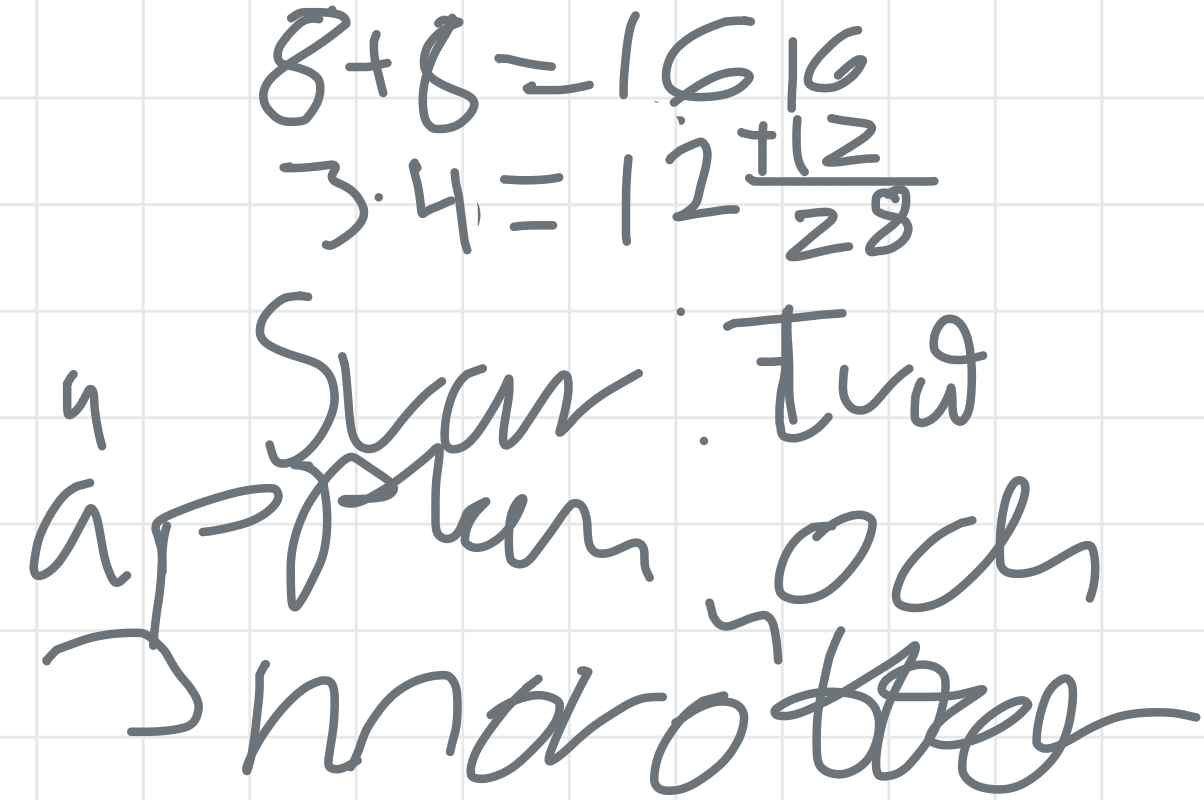 8+8=16 16
3·4=12 +12
28
Svar: Två
äpplen och
3 morötter